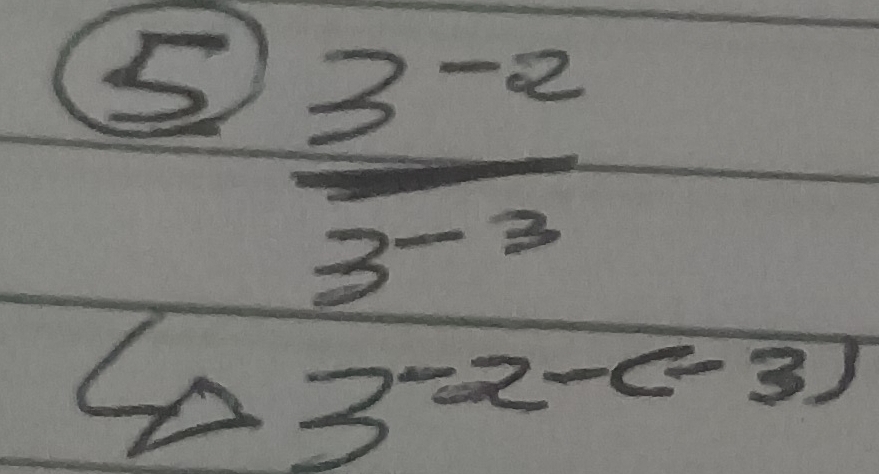 ⑤ 3⁻²
3⁻³
↳ 3⁻²⁻⁽⁻³⁾